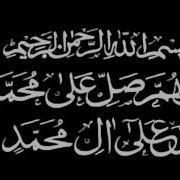 بسم الله الرحمن الرحيم
هم صل على محمد
وعلى آل محمد